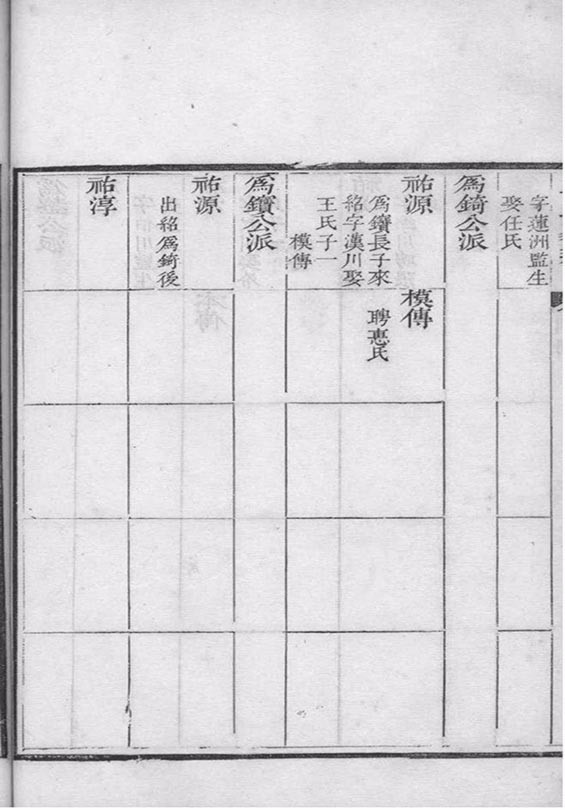 字蓮洲監生
娶任氏
為錡公派
祐源
為鑽長子來
紹字漢川娶
王氏子一
模傳
模傳
聘惠氏
為鑽公派
祐源
出紹為錡後
祐淳